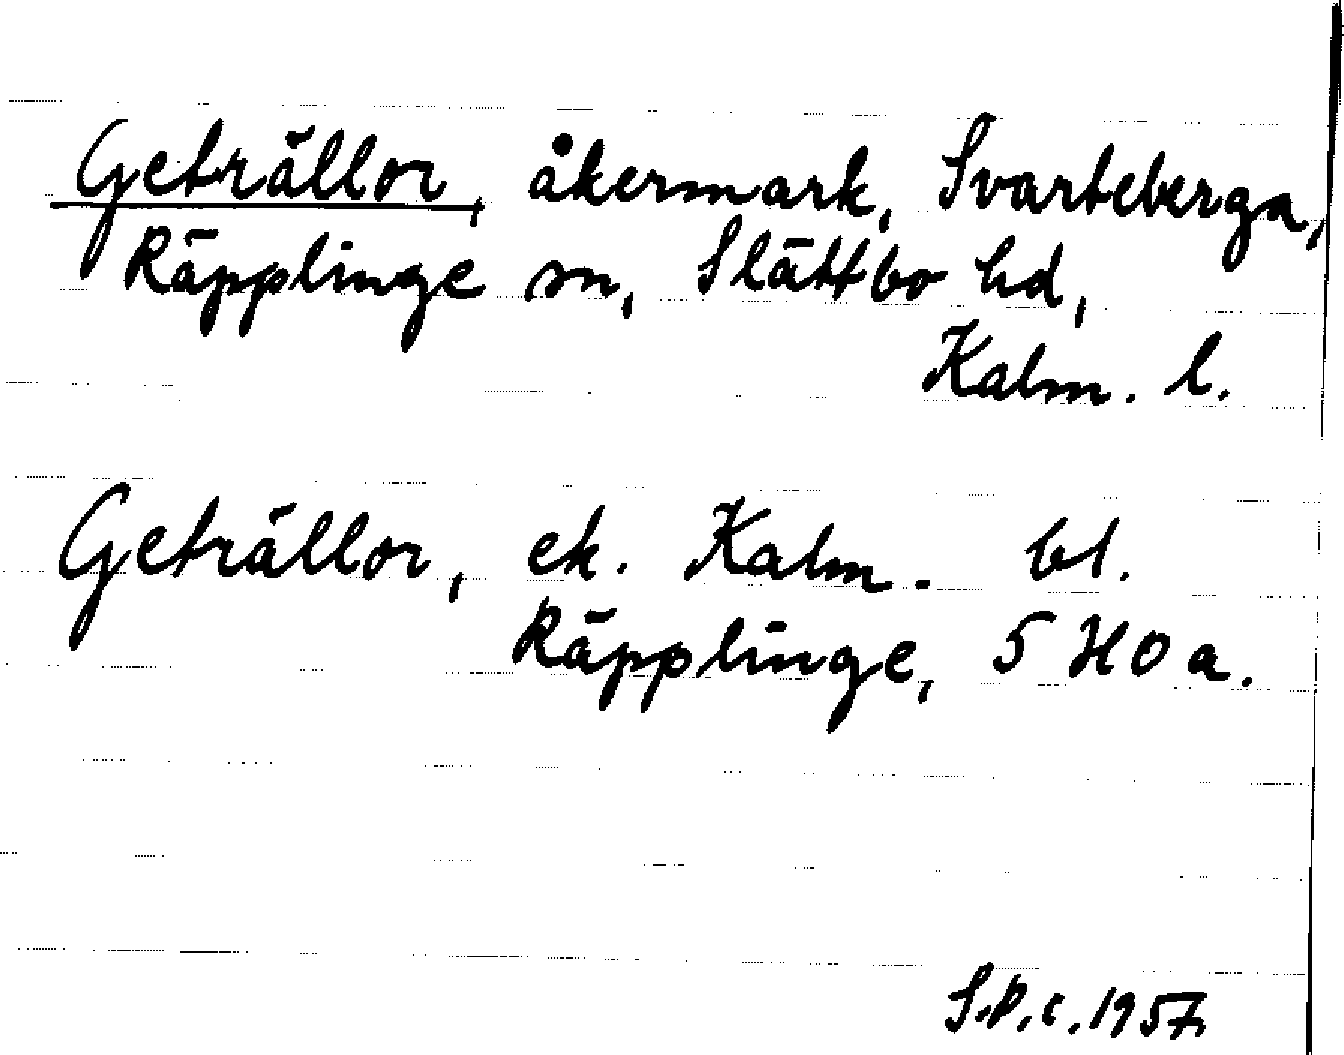 Geträllor, åkermark, Svarteberga,
Räpplinge sn, Slättbo hd,
Kalm. l.
Geträllor, ek. Kalm. bl.
Räpplinge, 5 H 0 a.
S.P.c. 1957